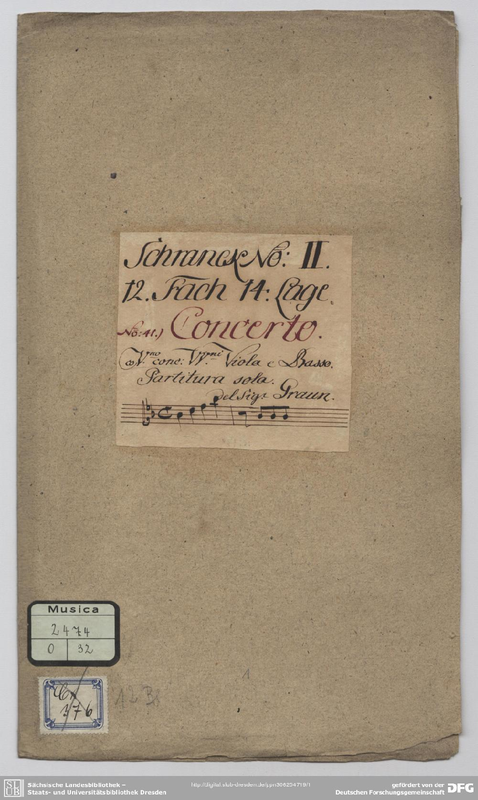 Schranck No: II.
12. Fach 14: Lage.
No: 41.) Concerto.
co V.no conc: VV.ni Viola e Basso.
Partitura sola.
Del Sigr Graun.
Musica
2474
O 32
Cx
776
1
Sächsische Landesbibliothek –
Staats- und Universitätsbibliothek Dresden
gefördert von der
Deutschen Forschungsgemeinschaft
DFG